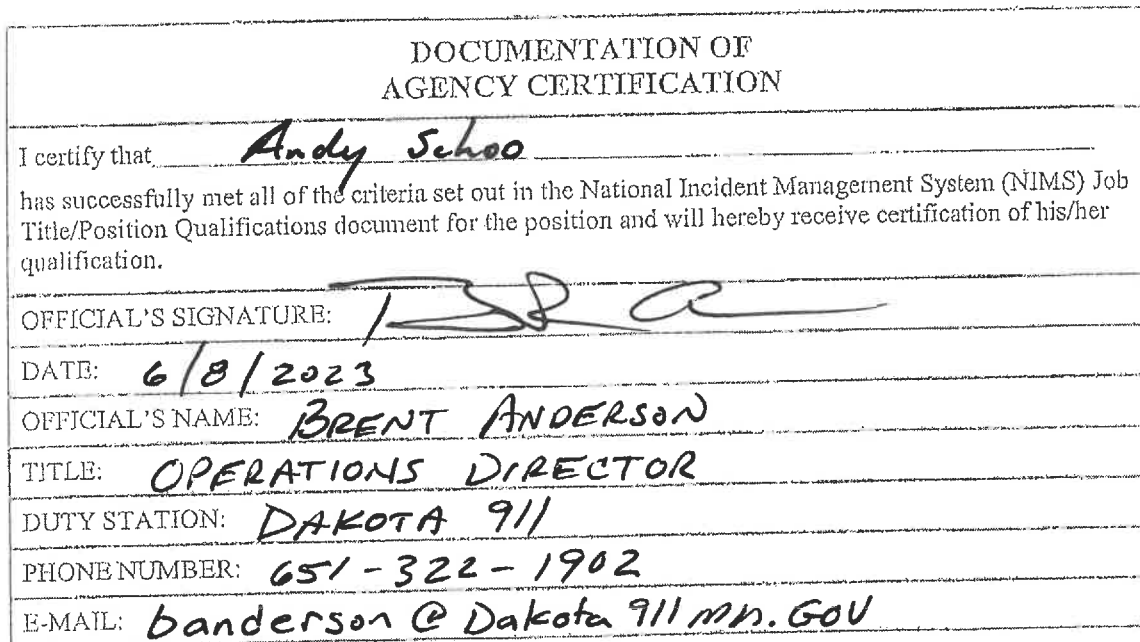 DOCUMENTATION OF
AGENCY CERTIFICATION
I certify that Andy Schoo
has successfully met all of the criteria set out in the National Incident Management System (NIMS) Job
Title/Position Qualifications document for the position and will hereby receive certification of his/her
qualification.
OFFICIAL'S SIGNATURE:
DATE: 6/8/2023
OFFICIAL'S NAME: BRENT ANDERSON
TITLE: OPERATIONS DIRECTOR
DUTY STATION: DAKOTA 911
PHONE NUMBER: 651-322-1902
E-MAIL: banderson@Dakota911mn.GOV